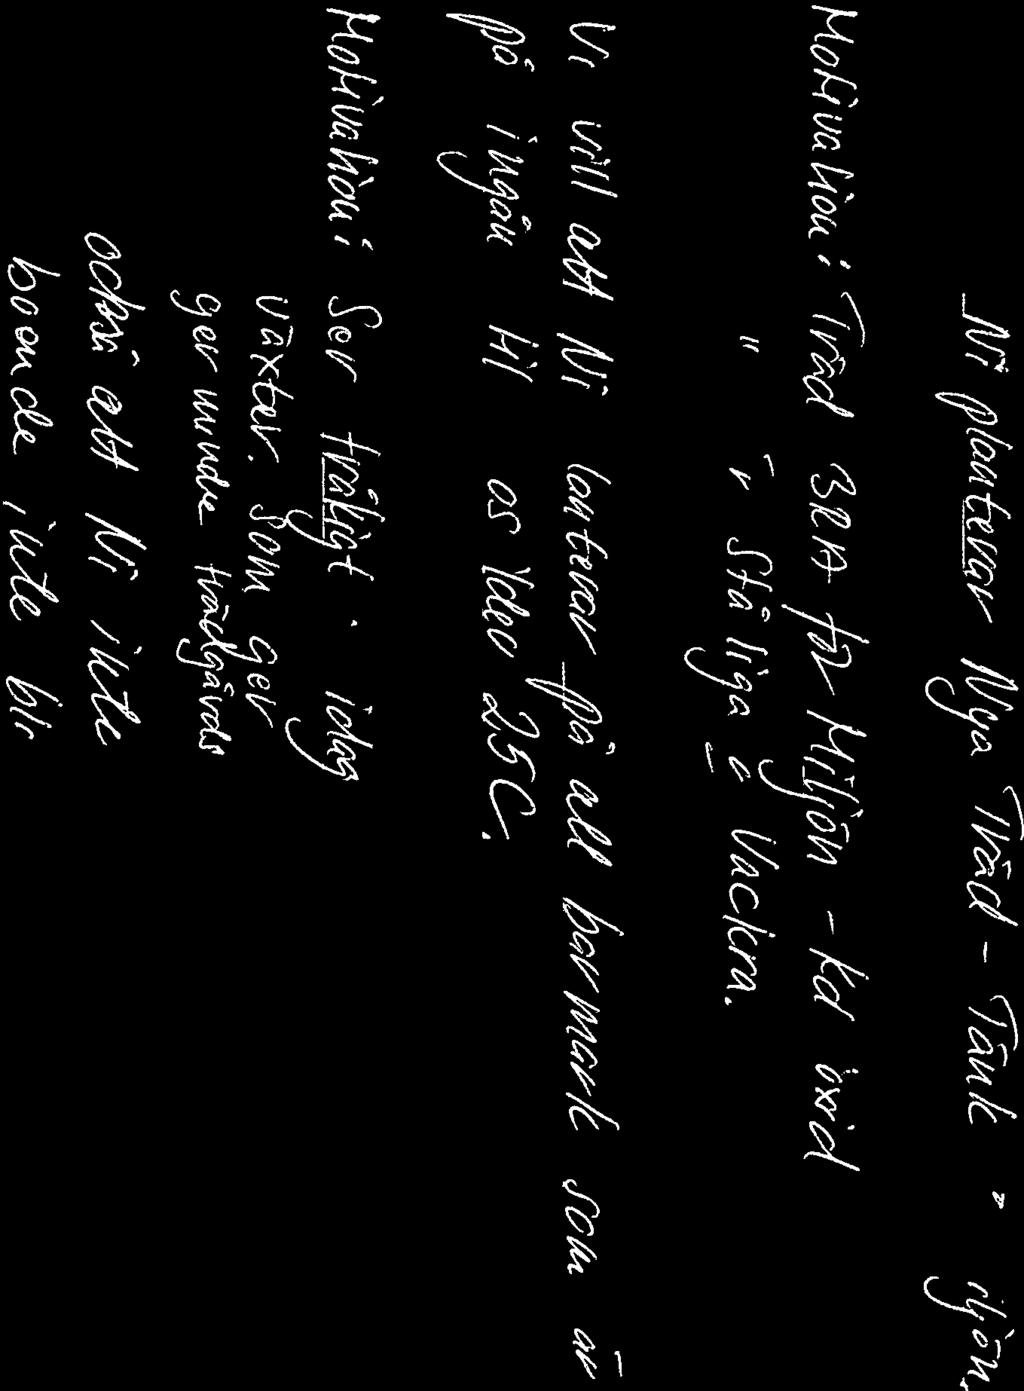 Ni planterar Nya Träd - Tänk iljön.
Motivation: Träd BRA för Miljön - Kol öxid
" " är Ståliga o Vackra.
Vi vill att Ni lanterar på all barmark som är
på ingån till os Ydev 25C.
Motivation: Ser tråkigt. idag
växter. Som ger
ger mindre trädgårds
också att Ni inte
boende inte blir